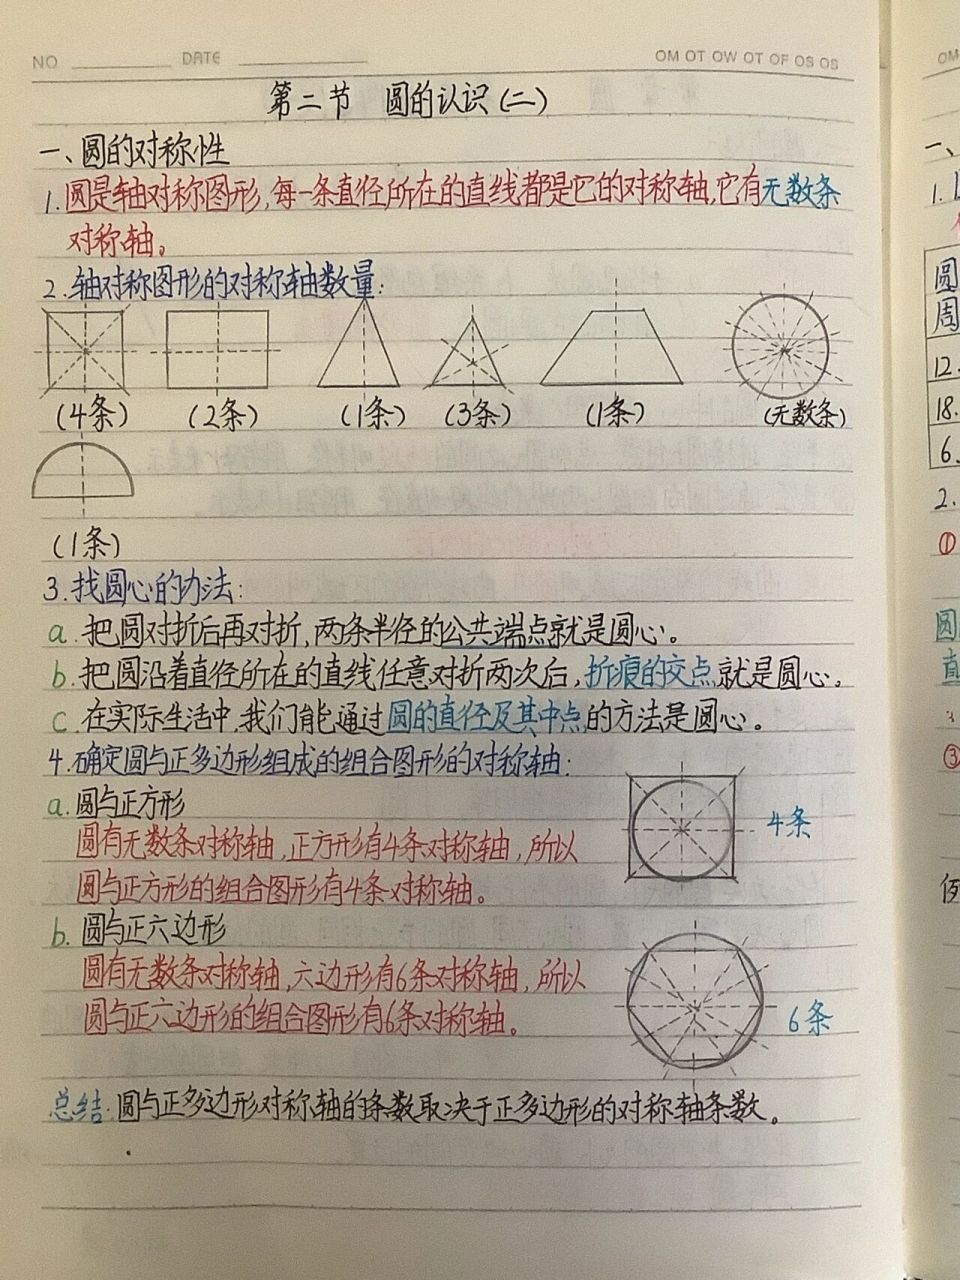 NO DATE OM OT OW OT OF OS OS
第二节 圆的认识(二)
一、圆的对称性
1.圆是轴对称图形,每一条直径所在的直线都是它的对称轴,它有无数条
对称轴。
2.轴对称图形的对称轴数量:
(4条) (2条) (1条) (3条) (1条) (无数条)
(1条)
3.找圆心的办法:
a.把圆对折后再对折,两条半径的公共端点就是圆心。
b.把圆沿着直径所在的直线任意对折两次后,折痕的交点就是圆心。
c.在实际生活中,我们能通过圆的直径及其中点的方法是圆心。
4.确定圆与正多边形组成的组合图形的对称轴:
a.圆与正方形
圆有无数条对称轴,正方形有4条对称轴,所以
圆与正方形的组合图形有4条对称轴。
4条
b.圆与正六边形
圆有无数条对称轴,六边形有6条对称轴,所以
圆与正六边形的组合图形有6条对称轴。
6条
总结:圆与正多边形对称轴的条数取决于正多边形的对称轴条数。
OM
一、
1.
圆
周
12.
18.
6.
2.
①
圆
直
③
例